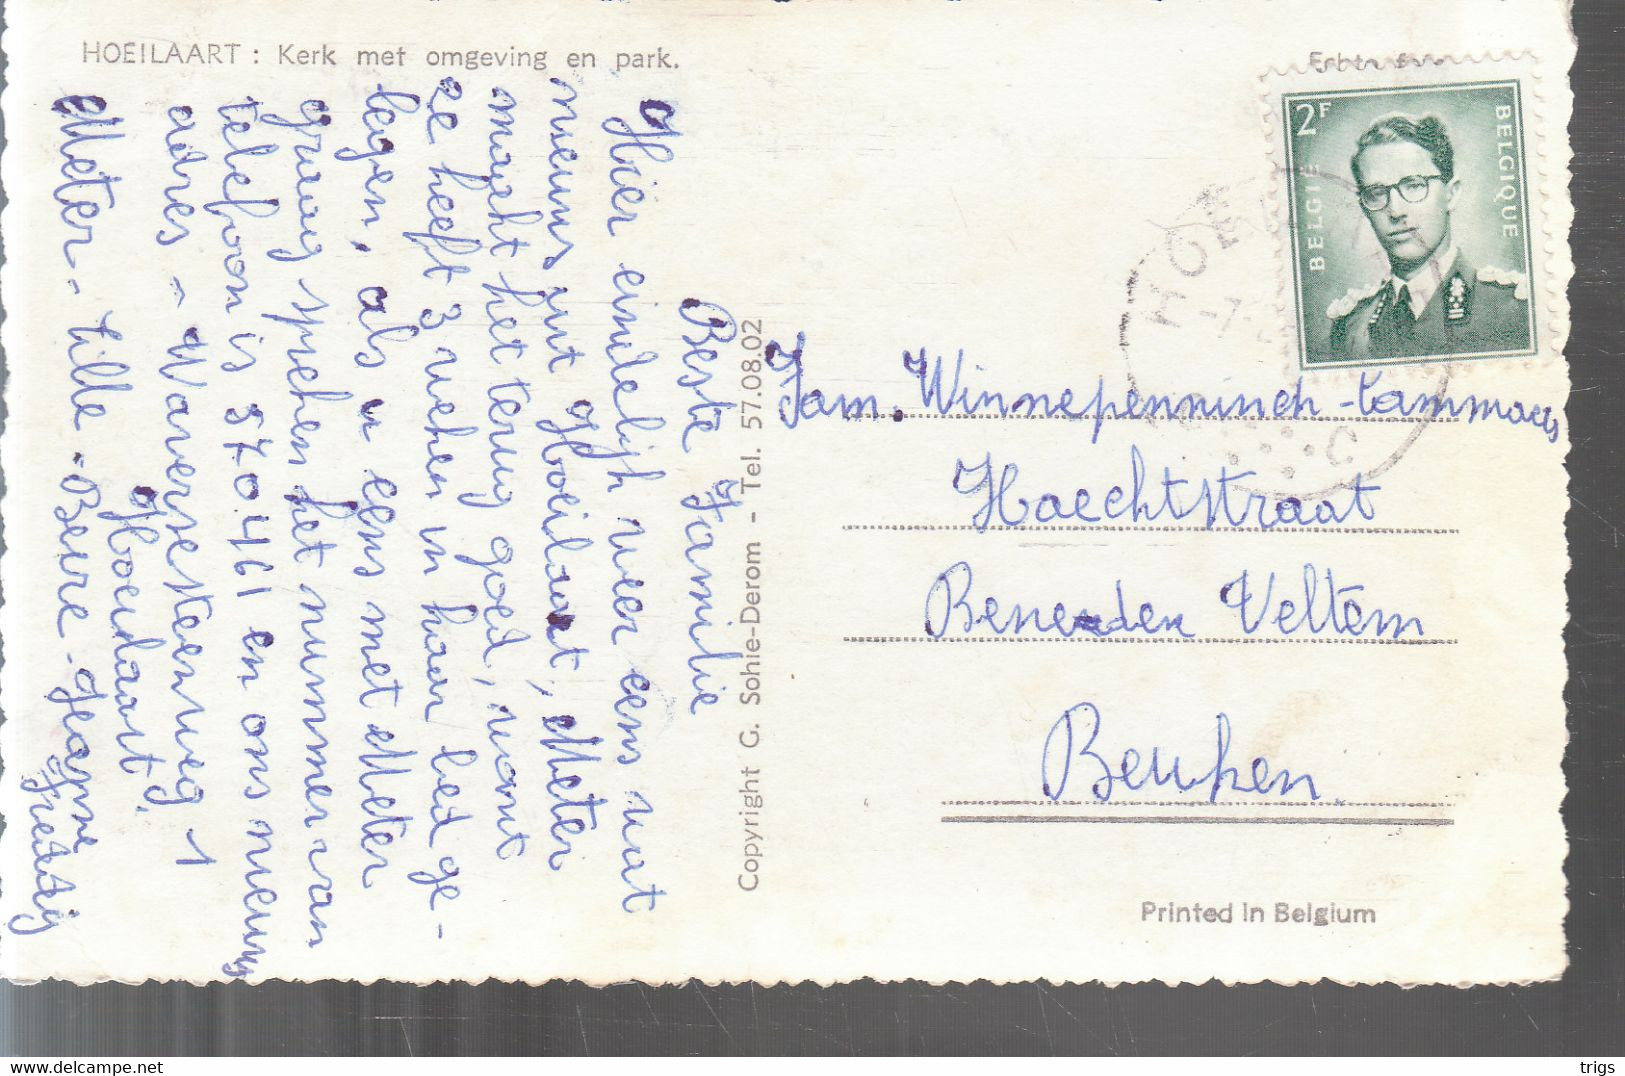 HOEILAART : Kerk met omgeving en park.
Beste Familie
Hier eindelijk weer eens wat
nieuws uit Hoeilaart, Meter
maakt het terug goed, want
ze heeft 3 weken in haar bed ge-
legen, als u eens met Meter
graag spreken het nummer van
telefoon is 570461 en ons nieuws
adres - Waversesteenweg 1
Hoeilaart.
Meter - Lille - Beire - Jeanne
Freddy
Copyright G. Sohie-Derom - Tel. 57.08.02
2F
BELGIE
BELGIQUE
HOE
Fam. Winnepenninck-Lammaes
Haechtstraat
Beneden Veltem
Beuken.
Printed in Belgium
trigs
delcampe.net